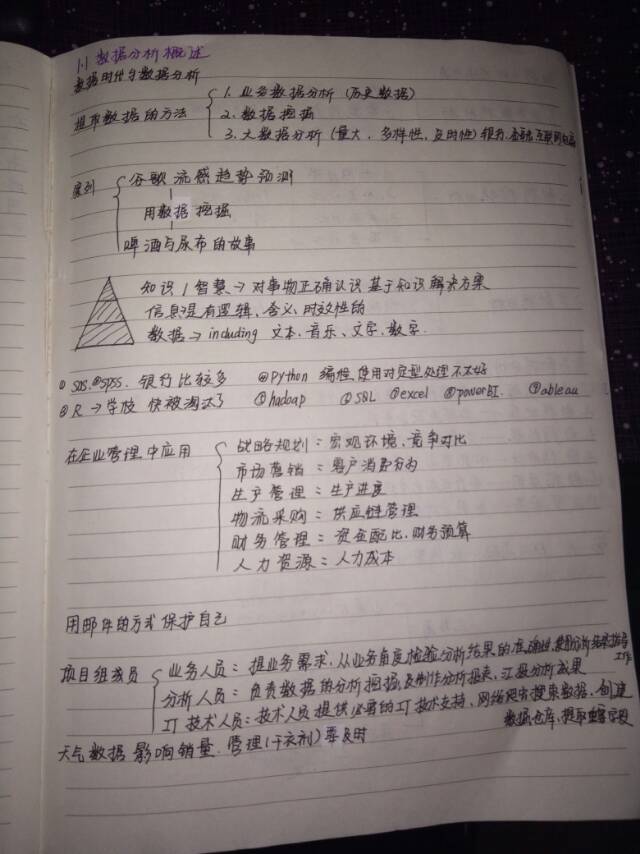 1.1 数据分析概述
数据时代与数据分析
提取数据的方法
1. 业务数据分析 (历史数据)
2. 数据挖掘
3. 大数据分析 (量大、多样性、及时性) 银行、金融、互联网
案例
谷歌流感趋势预测
用数据挖掘
啤酒与尿布的故事
知识/智慧→对事物正确认识 基于知识解决方案
信息没有逻辑、含义、时效性的
数据→including 文本、音乐、文字、数字.
① SAS. ②spss. 银行比较多 ④Python 编程 使用对定型处理不太好
③ R→学校 快被淘汰了 ⑤hadoop ⑥SQL ⑦excel ⑧powerBI. ⑨tableau
在企业管理中应用
战略规划: 宏观环境、竞争对比
市场营销: 客户消费行为
生产管理: 生产进度
物流采购: 供应链管理
财务管理: 资金配比、财务预算
人力资源: 人力成本
用邮件的方式保护自己
项目组成员
业务人员: 提业务需求, 从业务角度检验分析结果的准确性, 使用分析结果指导工作
分析人员: 负责数据的分析挖掘, 及制作分析报表, 汇报分析成果
IT技术人员: 技术人员提供必要的IT技术支持、网络爬虫搜集数据, 创建
数据仓库, 提取重要字段
天气数据影响销量. 管理(干衣剂)要及时